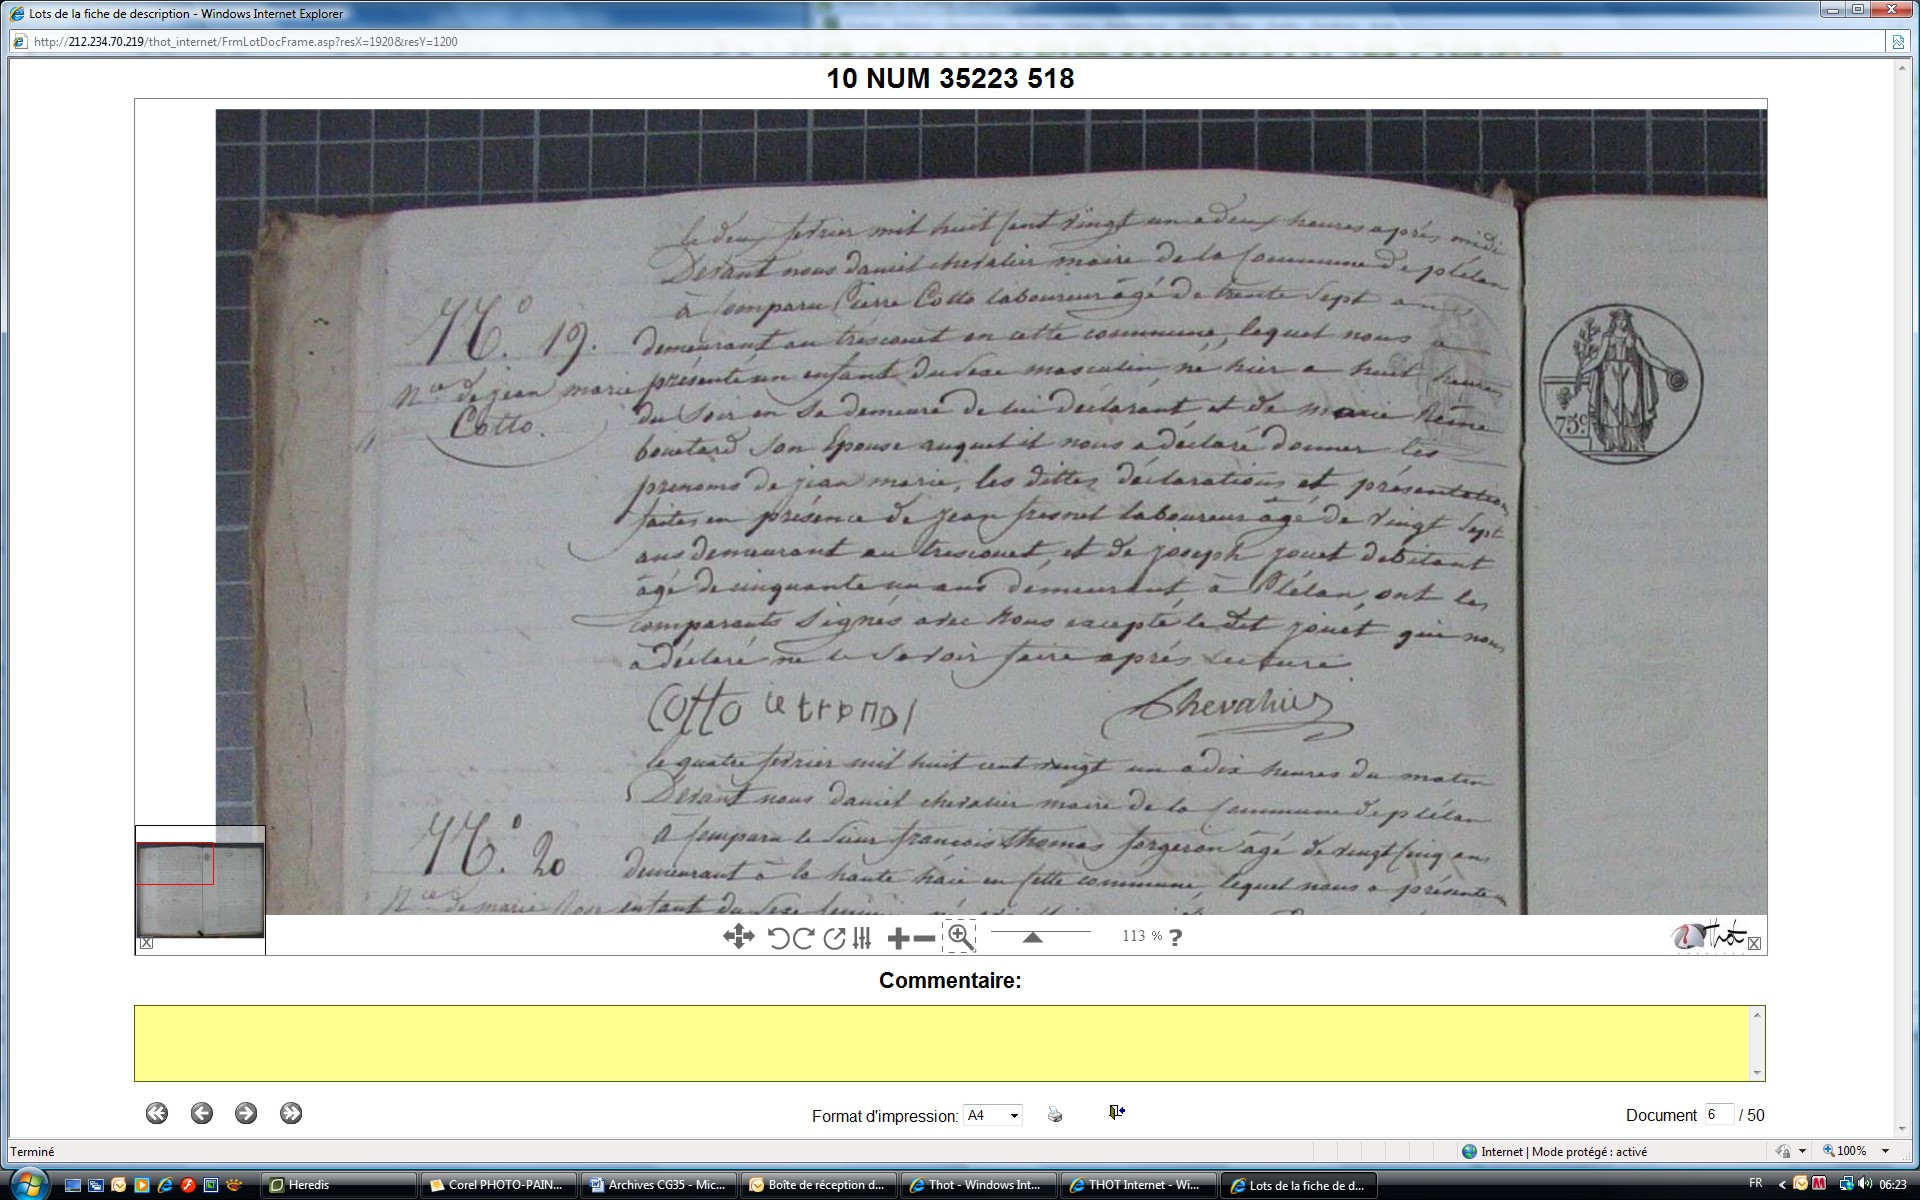 Lots de la fiche de description - Windows Internet Explorer
http://212.234.70.219/thot_internet/FrmLotDocFrame.asp?resX=1920&resY=1200
10 NUM 35223 518
le deux fevrier mil huit cent vingt un a deux heures après midi
Devant nous daniel chevalier maire de la Commune de plélan
à Comparu Pierre Cotto laboureur âgé de trente Sept ans
N.º 19.
demeurant au trescouet en cette commune, lequel nous a
Nce de jean marie
Cotto.
présenté un enfant du Sexe masculin né hier a huit heures
du Soir en Sa demeure de lui déclarant et de marie Reine
Son Epouse auquel il nous a déclaré donner les
prenoms de jean marie, les dittes déclarations et présentation
faites en présence de jean fresnel laboureur âgé de vingt Sept
ans demeurant au trescouet, et de joseph jouet debitant
âgé de cinquante un ans demeurant à Plélan, ont les
comparants Signés avec Nous excepté le dit jouet qui nous
a déclaré ne le Savoir faire après lecture
Cotto
Chevalier
75c
le quatre fevrier mil huit cent vingt un a dix heures du matin
Devant nous daniel chevalier maire de la Commune de plélan
N.º 20
A Comparu le Sieur francois thomas forgeron âgé de vingt Cinq ans
demeurant à la haute haie en Cette commune, lequel nous a présenté un
Nce de marie Rose
enfant du Sexe feminin
113 %
?
Thot
Commentaire:
Format d'impression: A4
Document 6 / 50
Terminé
Internet | Mode protégé : activé
100%
Heredis
Corel PHOTO-PAIN...
Archives CG35 - Mic...
Boîte de réception d...
Thot - Windows Int...
THOT Internet - Wi...
Lots de la fiche de d...
FR
06:23